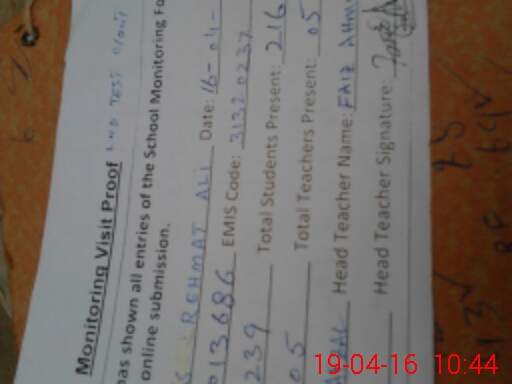 Monitoring Visit Proof LND TEST
has shown all entries of the School Monitoring Fo
online submission.
REHMAT ALI Date: 16-04-
013686 EMIS Code: 31320237
239 Total Students Present: 216
05 Total Teachers Present: 05
Head Teacher Name: FAIZ AHM
Head Teacher Signature:
19-04-16 10:44